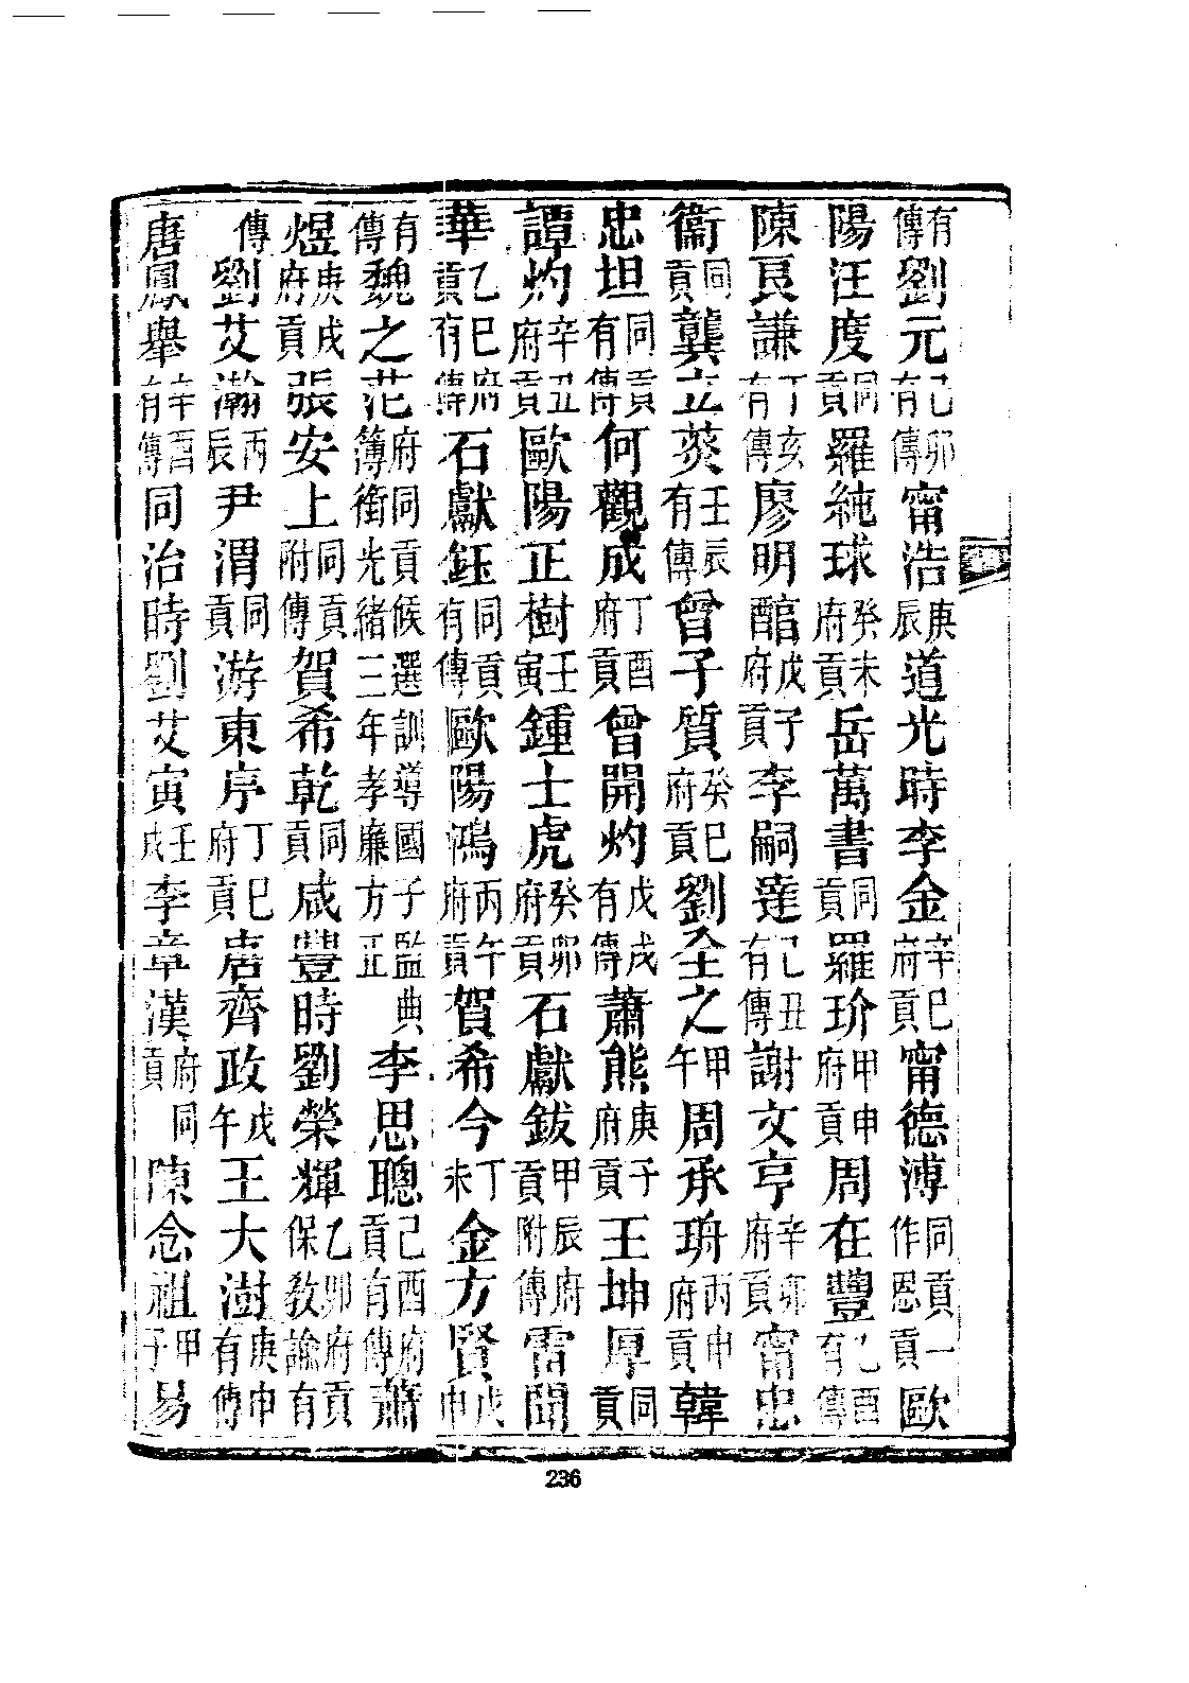 有傳劉元己卯有傳甯浩庚辰道光時李金辛巳府貢甯德溥同貢一作恩貢歐
陽汪度同貢羅純球癸未府貢岳萬書同貢羅玠甲申府貢周在豐乙酉有傳
陳良謙丁亥有傳廖明酯戊子府貢李嗣達己丑有傳謝文亨辛卯府貢甯忠
衞同貢龔立葵壬辰有傳曾子質癸巳府貢劉全之甲午周承琦丙申府貢韓
忠坦同貢有傳何觀成丁酉府貢曾開灼戊戌有傳蕭熊庚子府貢王坤厚同貢
譚灼辛丑府貢歐陽正樹壬寅鍾士虎癸卯府貢石獻鈸甲辰府貢附傳雷聞
華乙巳府貢有傳石獻鈺同貢有傳歐陽鴻丙午府貢賀希今丁未金方賢戊申
有傳魏之范府同貢候選訓導國子監典簿銜光緒三年孝廉方正李思聰己酉府貢有傳蕭
煜庚戌府貢張安上同貢附傳賀希乾同貢咸豐時劉榮輝乙卯府貢保教諭有
傳劉艾瀚丙辰尹渭同貢游東序丁巳府貢唐齊政戊午王大澍庚申有傳
唐鳳舉辛酉有傳同治時劉艾寅壬戌李章漢府同貢陳念祖甲子易
236